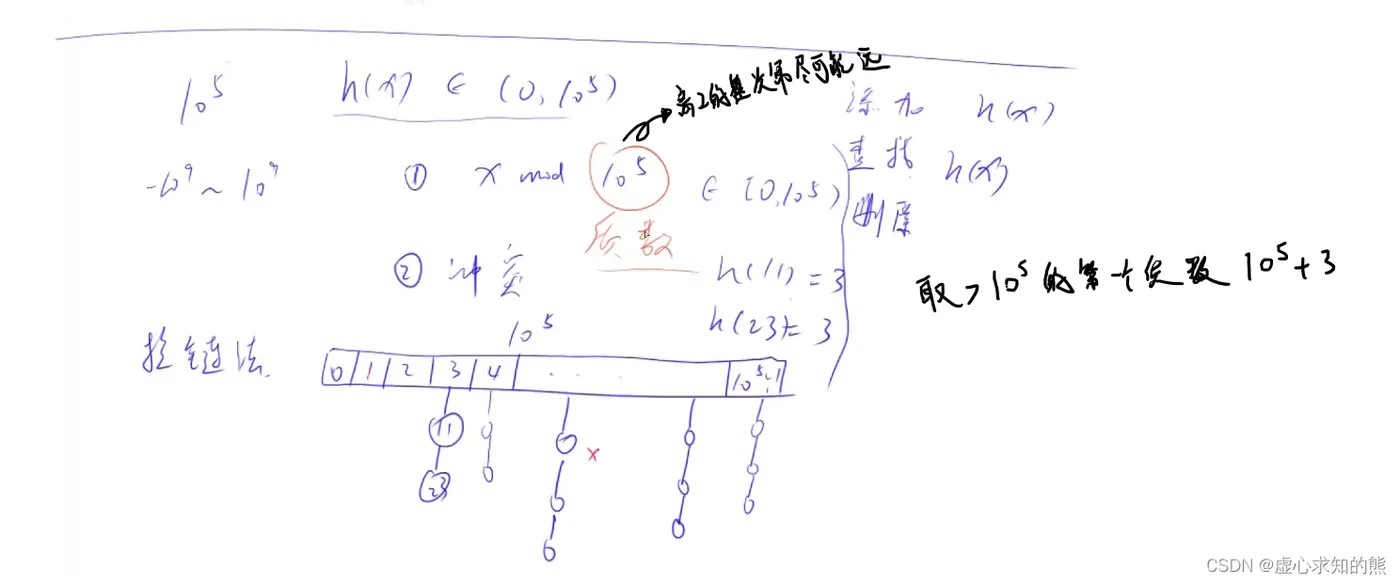 离2的整次幂尽可能远
10^5 h(x) ∈ (0, 10^5) 添加 h(x)
-10^9 ~ 10^9 ① x mod 10^5 ∈ [0, 10^5) 查找 h(x)
质数 删除
② 冲突 h(11) = 3
取>10^5的第一个质数 10^5+3
h(23) = 3
10^5
拉链法
0 1 2 3 4 . . . . 10^5-1
11
23
x
CSDN @虚心求知的熊